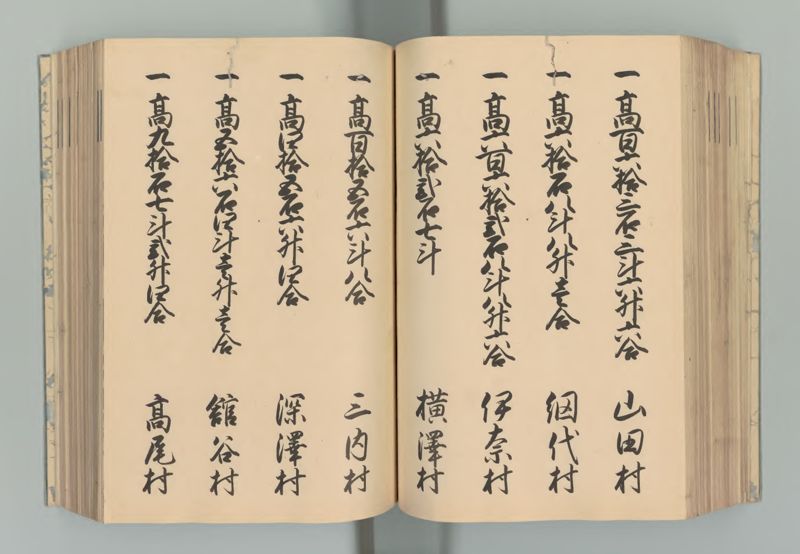 一 高百六拾三石三斗六升六合 山田村
一 高六拾石八斗八升壱合 網代村
一 高六百六拾弐石八斗八升六合 伊奈村
一 高六拾弐石七斗 横澤村
一 高百拾五石六斗八合 三内村
一 高四拾五石六升四合 深澤村
一 高五拾六石四斗壱升壱合 舘谷村
一 高九拾石七斗弐升四合 高尾村